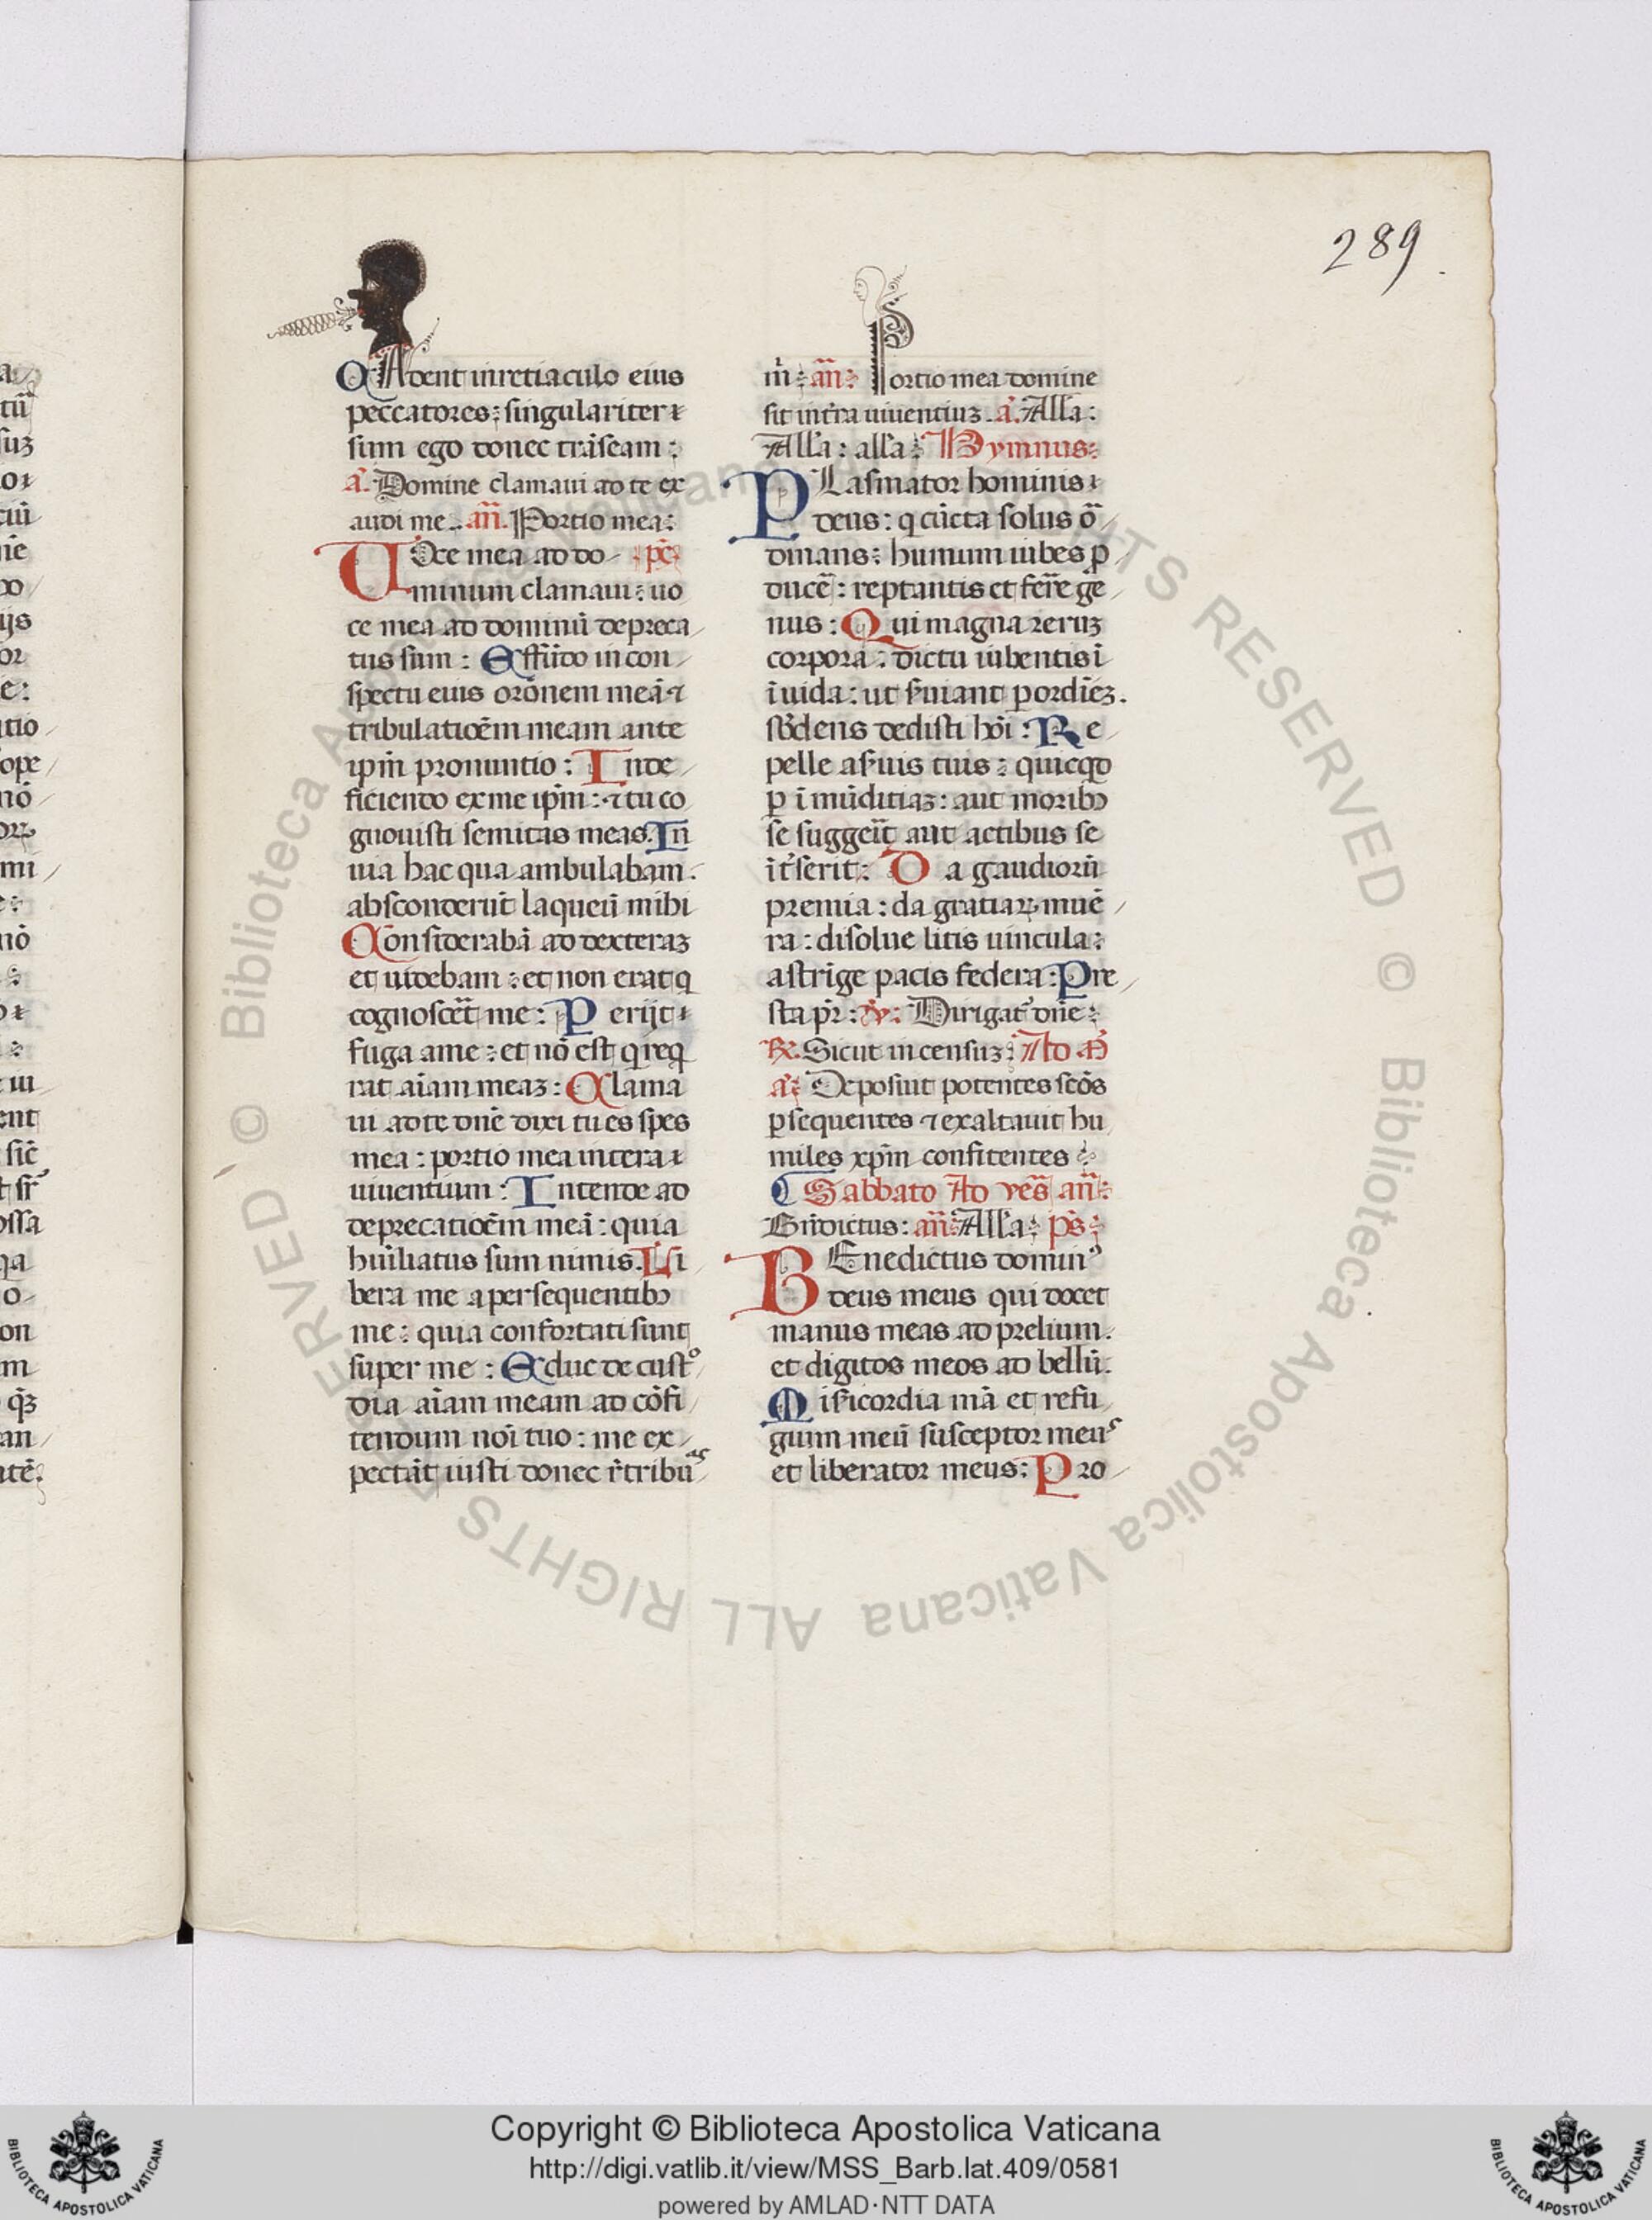 289
CAdent in retiaculo eius
peccatores: singulariter
sum ego donec trāseam:
a. Domine clamaui ad te ex
audi me. an. Portio mea:
UOce mea ad do ps
minum clamaui: uo
ce mea ad dominū depreca
tus sum: Effūdo in con
spectu eius orōnem meā ⁊
tribulatiōem meam ante
ip̄m pronuntio: In de
ficiendo ex me ip̄m: ⁊ tu co
gnouisti semitas meas. In
uia hac qua ambulabam.
absconderūt laqueū mihi
Considerabā ad dexteraꝫ
et uidebam: et non erat q
cognosc̄et me: Perijt
fuga a me: et nō est q req
rat aīam meaꝫ: Clama
ui ad te dn̄e dixi tu es spes
mea: portio mea in terra
uiuentium: Intende ad
deprecatiōem meā: quia
hūiliatus sum nimis. Li
bera me a persequentibꝫ
me: quia confortati sunt
super me: Educ de custo
dia aīam meam ad cōfi
tendum noī tuo: me ex
pectāt iusti donec r̄tribuas
m̄: an: Portio mea domine
sit in t̄ra uiuentiuꝫ. a. All'a:
All'a: all'a: Hymnus:
PLasmator hominis
deus: q cūcta solus ō
dinans: humum iubes ꝓ
ducē: reptantis et fer̄e ge
nus: Qui magna reruꝫ
corpora: dictu iubentis ī
īuida: ut s̄uiant ꝑ ordīeꝫ.
sb̄dens dedisti hōi: Re
pelle a s̄uis tuis: quicqd
ꝑ īmūditiaꝫ: aut moribꝫ
se sugger̄it aut actibus se
īt̄serit: Da gaudiorū
premia: da gratiaꝝ mune
ra: disolue litis uincula:
astrīge pacis federa: Pre
sta pr̄: ℣: Dirigat' dn̄e:
℟. Sicut incensuꝫ: Ad M̄
a: Deposuit potentes scōs
ꝑsequentes ⁊ exaltauit hu
miles xp̄m confitentes:
¶ Sabbato Ad ves̄ an:
Bn̄dictus: an: All'a: ps:
BEnedictus domin᷒
deus meus qui docet
manus meas ad prelium.
et digitos meos ad bellū.
Mis̄icordia mā et refu
gium meū susceptor meus
et liberator meus: Pro
Copyright © Biblioteca Apostolica Vaticana
http://digi.vatlib.it/view/MSS_Barb.lat.409/0581
powered by AMLAD·NTT DATA
BIBLIOTECA APOSTOLICA VATICANA
BIBLIOTECA APOSTOLICA VATICANA
© Biblioteca Apostolica Vaticana ALL RIGHTS RESERVED © Biblioteca Apostolica Vaticana ALL RIGHTS RESERVED